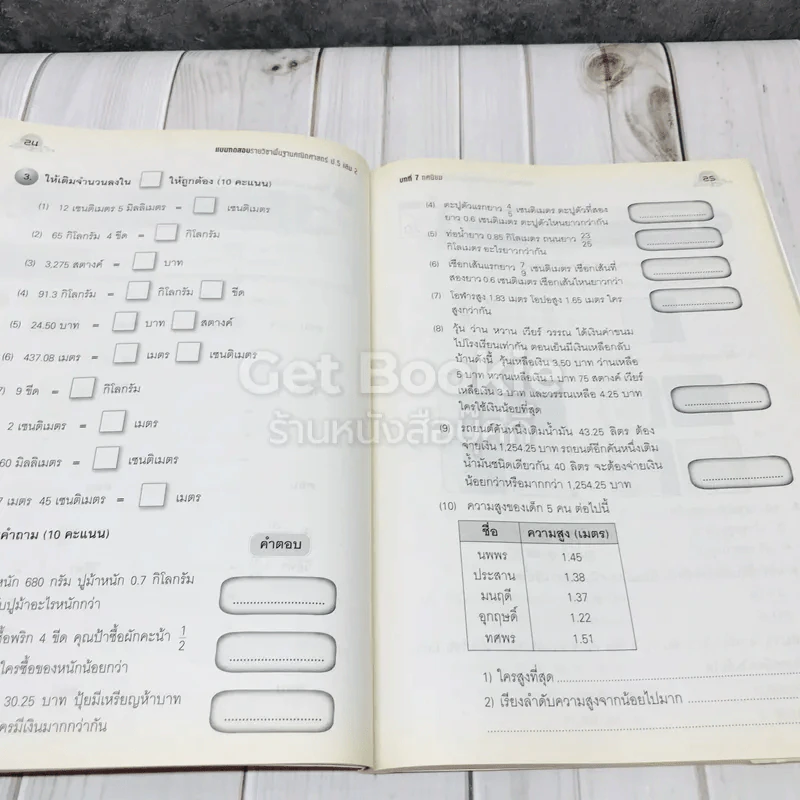 24
แบบทดสอบรายวิชาพื้นฐานคณิตศาสตร์ ป.5 เล่ม 2
3. ให้เติมจำนวนลงใน ให้ถูกต้อง (10 คะแนน)
(1) 12 เซนติเมตร 5 มิลลิเมตร = เซนติเมตร
(2) 65 กิโลกรัม 4 ขีด = กิโลกรัม
(3) 3,275 สตางค์ = บาท
(4) 91.3 กิโลกรัม = กิโลกรัม ขีด
(5) 24.50 บาท = บาท สตางค์
(6) 437.08 เมตร = เมตร เซนติเมตร
7) 9 ขีด = กิโลกรัม
2 เซนติเมตร = เมตร
60 มิลลิเมตร = เซนติเมตร
7 เมตร 45 เซนติเมตร = เมตร
คำถาม (10 คะแนน)
คำตอบ
หนัก 680 กรัม ปูม้าหนัก 0.7 กิโลกรัม
ปูม้าอะไรหนักกว่า
ซื้อพริก 4 ขีด คุณป้าซื้อผักคะน้า 1/2
ใครซื้อของหนักน้อยกว่า
30.25 บาท ปุ้ยมีเหรียญห้าบาท
ใครมีเงินมากกว่ากัน
บทที่ 7 ทศนิยม
25
(4) ตะปูตัวแรกยาว 4/5 เซนติเมตร ตะปูตัวที่สอง
ยาว 0.6 เซนติเมตร ตะปูตัวไหนยาวกว่ากัน
(5) ท่อน้ำยาว 0.85 กิโลเมตร ถนนยาว 23/25
กิโลเมตร อะไรยาวกว่ากัน
(6) เชือกเส้นแรกยาว 7/9 เซนติเมตร เชือกเส้นที่
สองยาว 0.6 เซนติเมตร เชือกเส้นไหนยาวกว่า
(7) โอฬารสูง 1.83 เมตร โอปอสูง 1.65 เมตร ใคร
สูงกว่ากัน
(8) วุ้น ว่าน หวาน เวียร์ วรรณ ได้เงินค่าขนม
ไปโรงเรียนเท่ากัน ตอนเย็นมีเงินเหลือกลับ
บ้านดังนี้ วุ้นเหลือเงิน 3.50 บาท ว่านเหลือ
5 บาท หวานเหลือเงิน 1 บาท 75 สตางค์ เวียร์
เหลือเงิน 3 บาท และวรรณเหลือ 4.25 บาท
ใครใช้เงินน้อยที่สุด
(9) รถยนต์คันหนึ่งเติมน้ำมัน 43.25 ลิตร ต้อง
จ่ายเงิน 1,254.25 บาท รถยนต์อีกคันหนึ่งเติม
น้ำมันชนิดเดียวกัน 40 ลิตร จะต้องจ่ายเงิน
น้อยกว่าหรือมากกว่า 1,254.25 บาท
(10) ความสูงของเด็ก 5 คน ต่อไปนี้
ชื่อ ความสูง (เมตร)
นพพร 1.45
ประสาน 1.38
มนฤดี 1.37
อุกฤษดิ์ 1.22
ทศพร 1.51
1) ใครสูงที่สุด
2) เรียงลำดับความสูงจากน้อยไปมาก
Get Book
ร้านหนังสือ